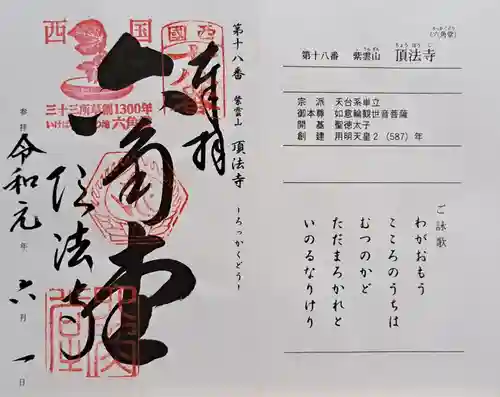 (六角堂)
ろっかくどう
第十八番 紫雲山 頂法寺
しうんざん ちょうほうじ
宗派 天台系単立
御本尊 如意輪観世音菩薩
開基 聖徳太子
創建 用明天皇2(587)年
ご詠歌
わがおもう
こころのうちは
むつのかど
ただまろかれと
いのるなりけり
第十八番 紫雲山 頂法寺 -ろっかくどう-
奉拝
六角堂
頂法寺
参拝 令和元年 六月 一日
西国
三十三所草創1300年
六角堂